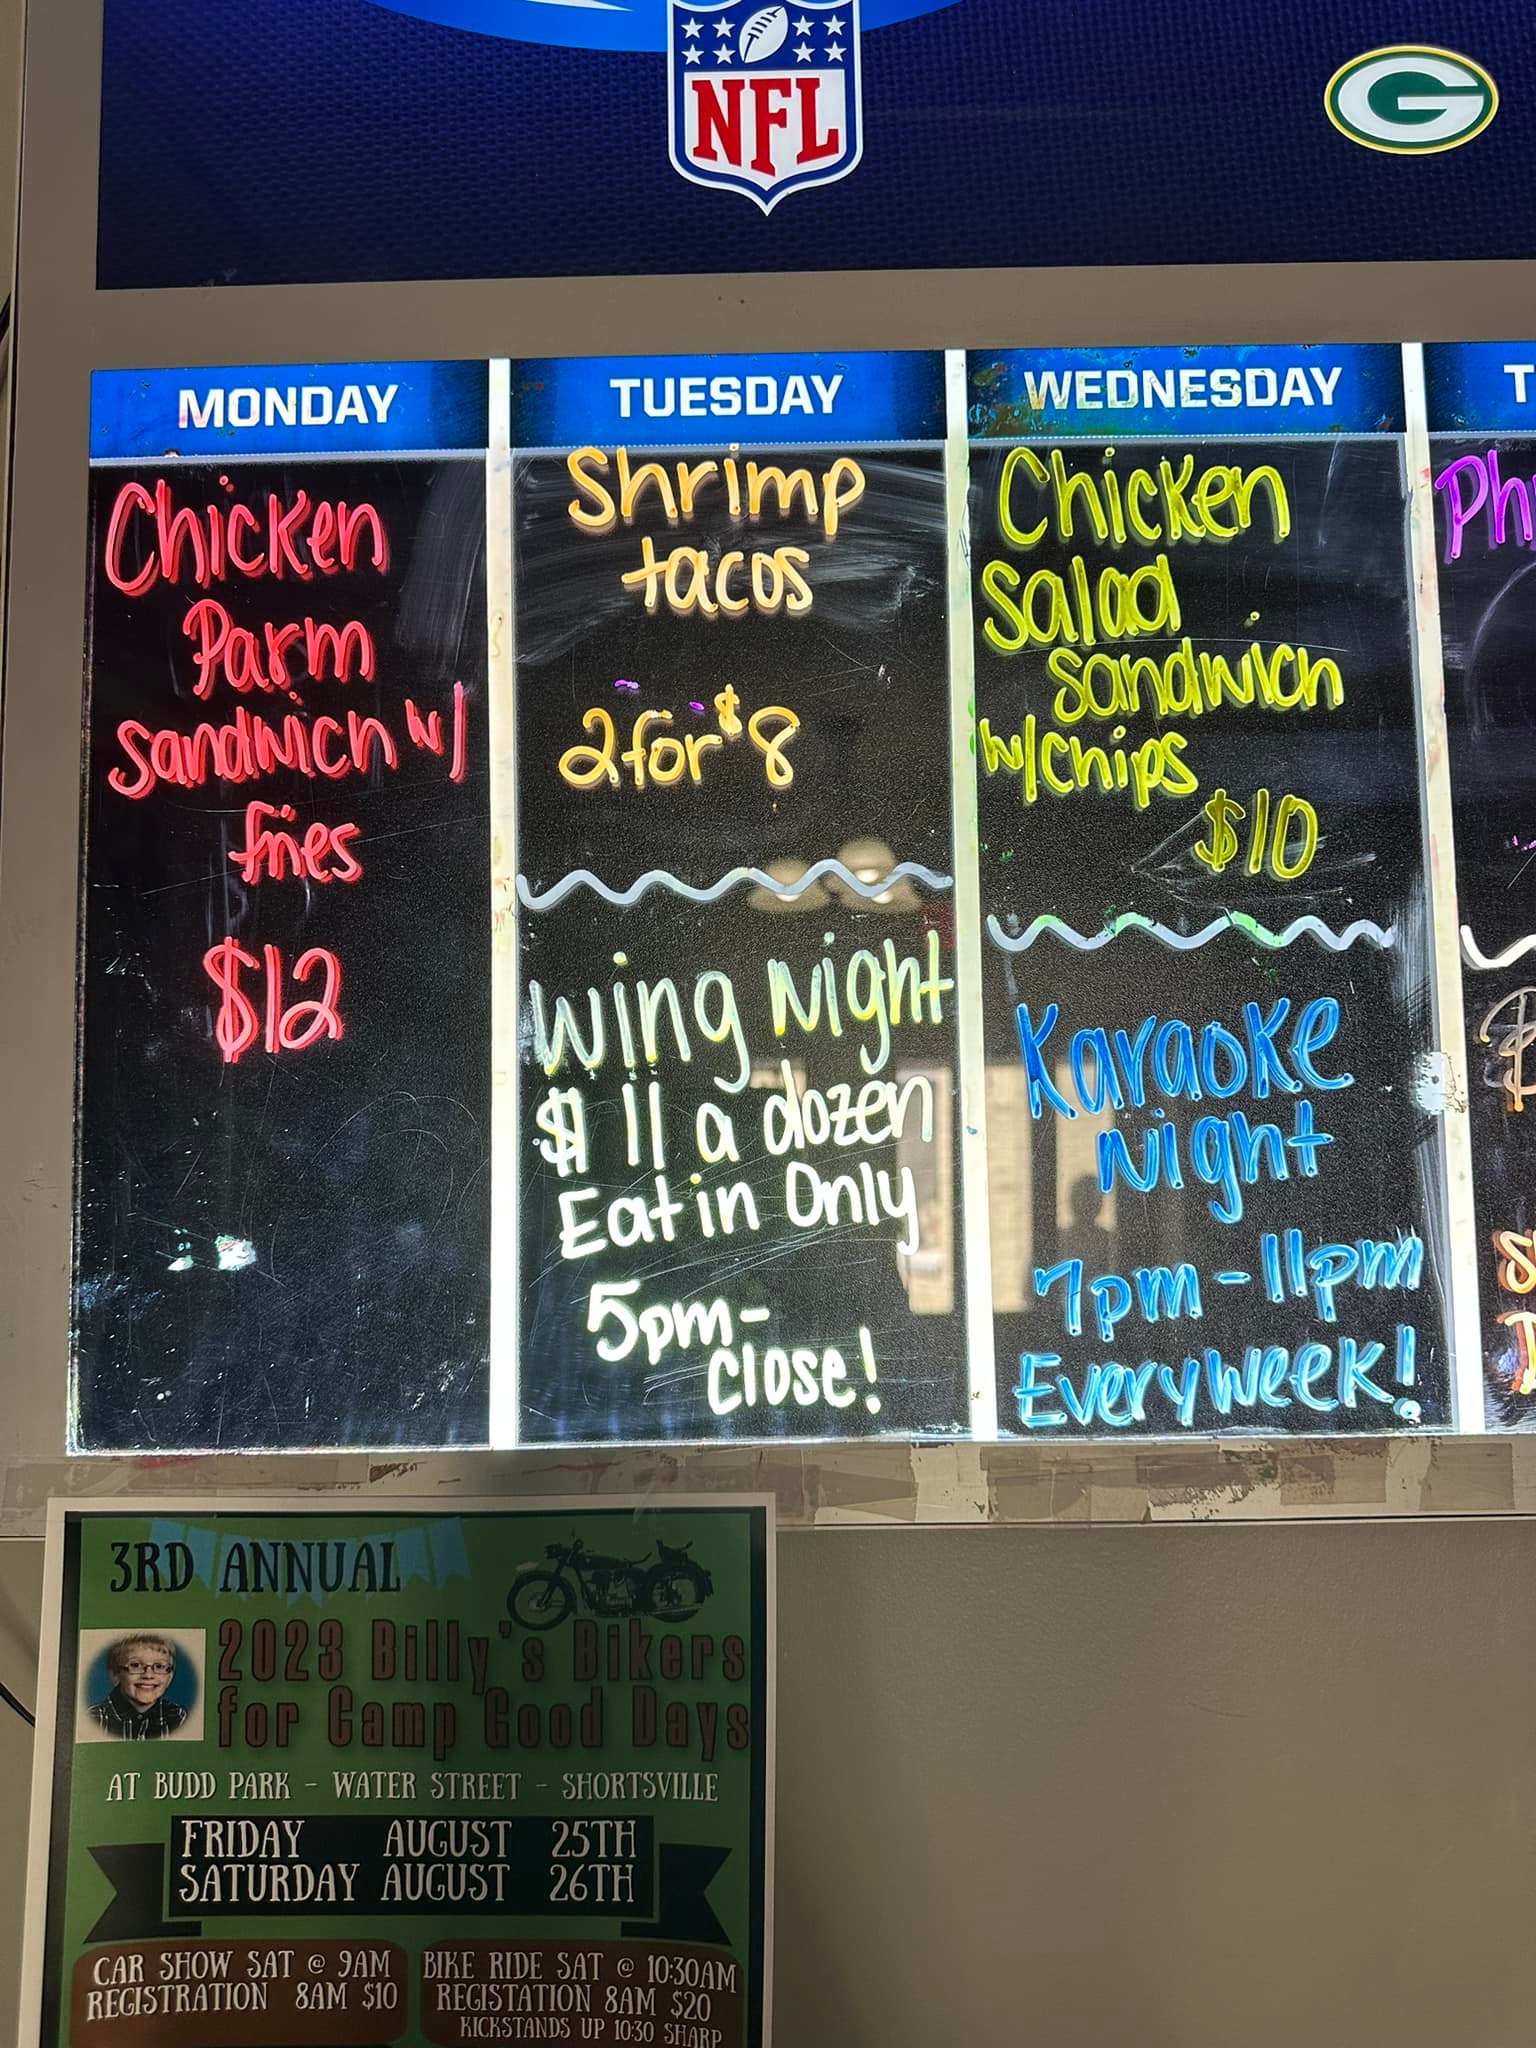 NFL
G
MONDAY
Chicken
Parm
sandwich w/
fries
$12
TUESDAY
Shrimp
tacos
2 for $8
Wing Night
$11 a dozen
Eat in Only
5pm-
close!
WEDNESDAY
Chicken
Salad
sandwich
w/chips
$10
Karaoke
Night
7pm-11pm
Every week!
T
Ph
$
3RD ANNUAL
2023 Billy's Bikers
for Camp Good Days
AT BUDD PARK - WATER STREET - SHORTSVILLE
FRIDAY AUGUST 25TH
SATURDAY AUGUST 26TH
CAR SHOW SAT @ 9AM
REGISTRATION 8AM $10
BIKE RIDE SAT @ 10:30AM
REGISTATION 8AM $20
KICKSTANDS UP 10:30 SHARP